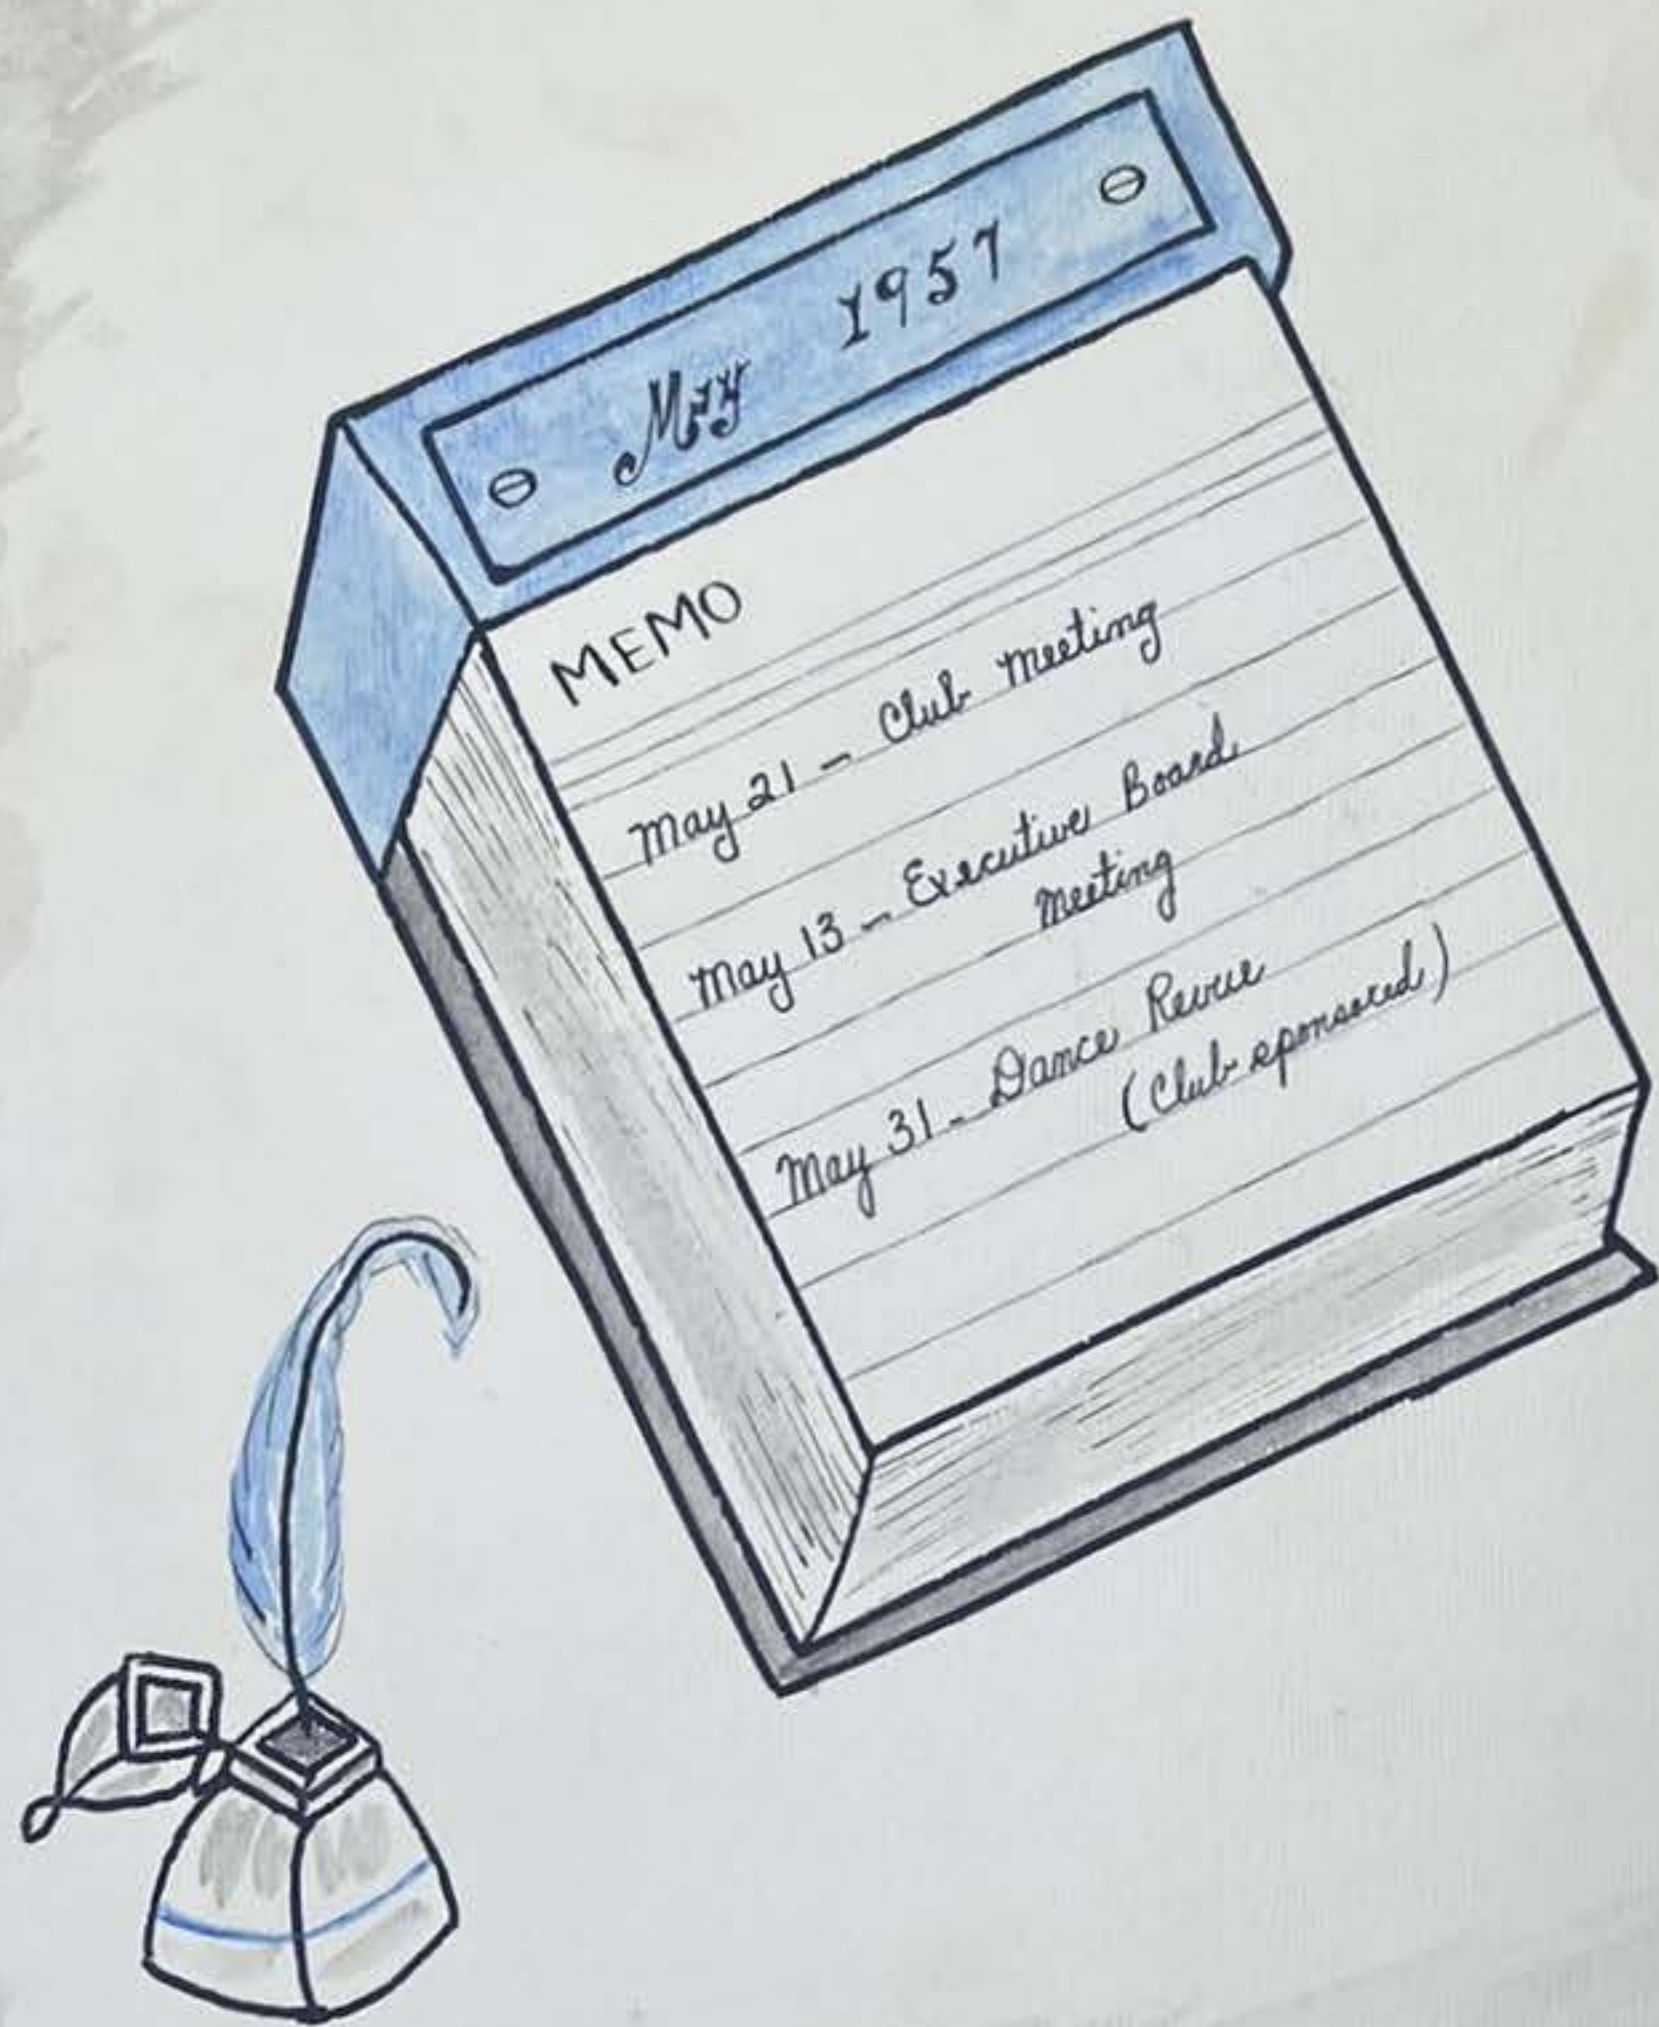 May 1957
MEMO
May 21 - Club Meeting
May 13 - Executive Board
Meeting
May 31 - Dance Revue
(Club sponsored)